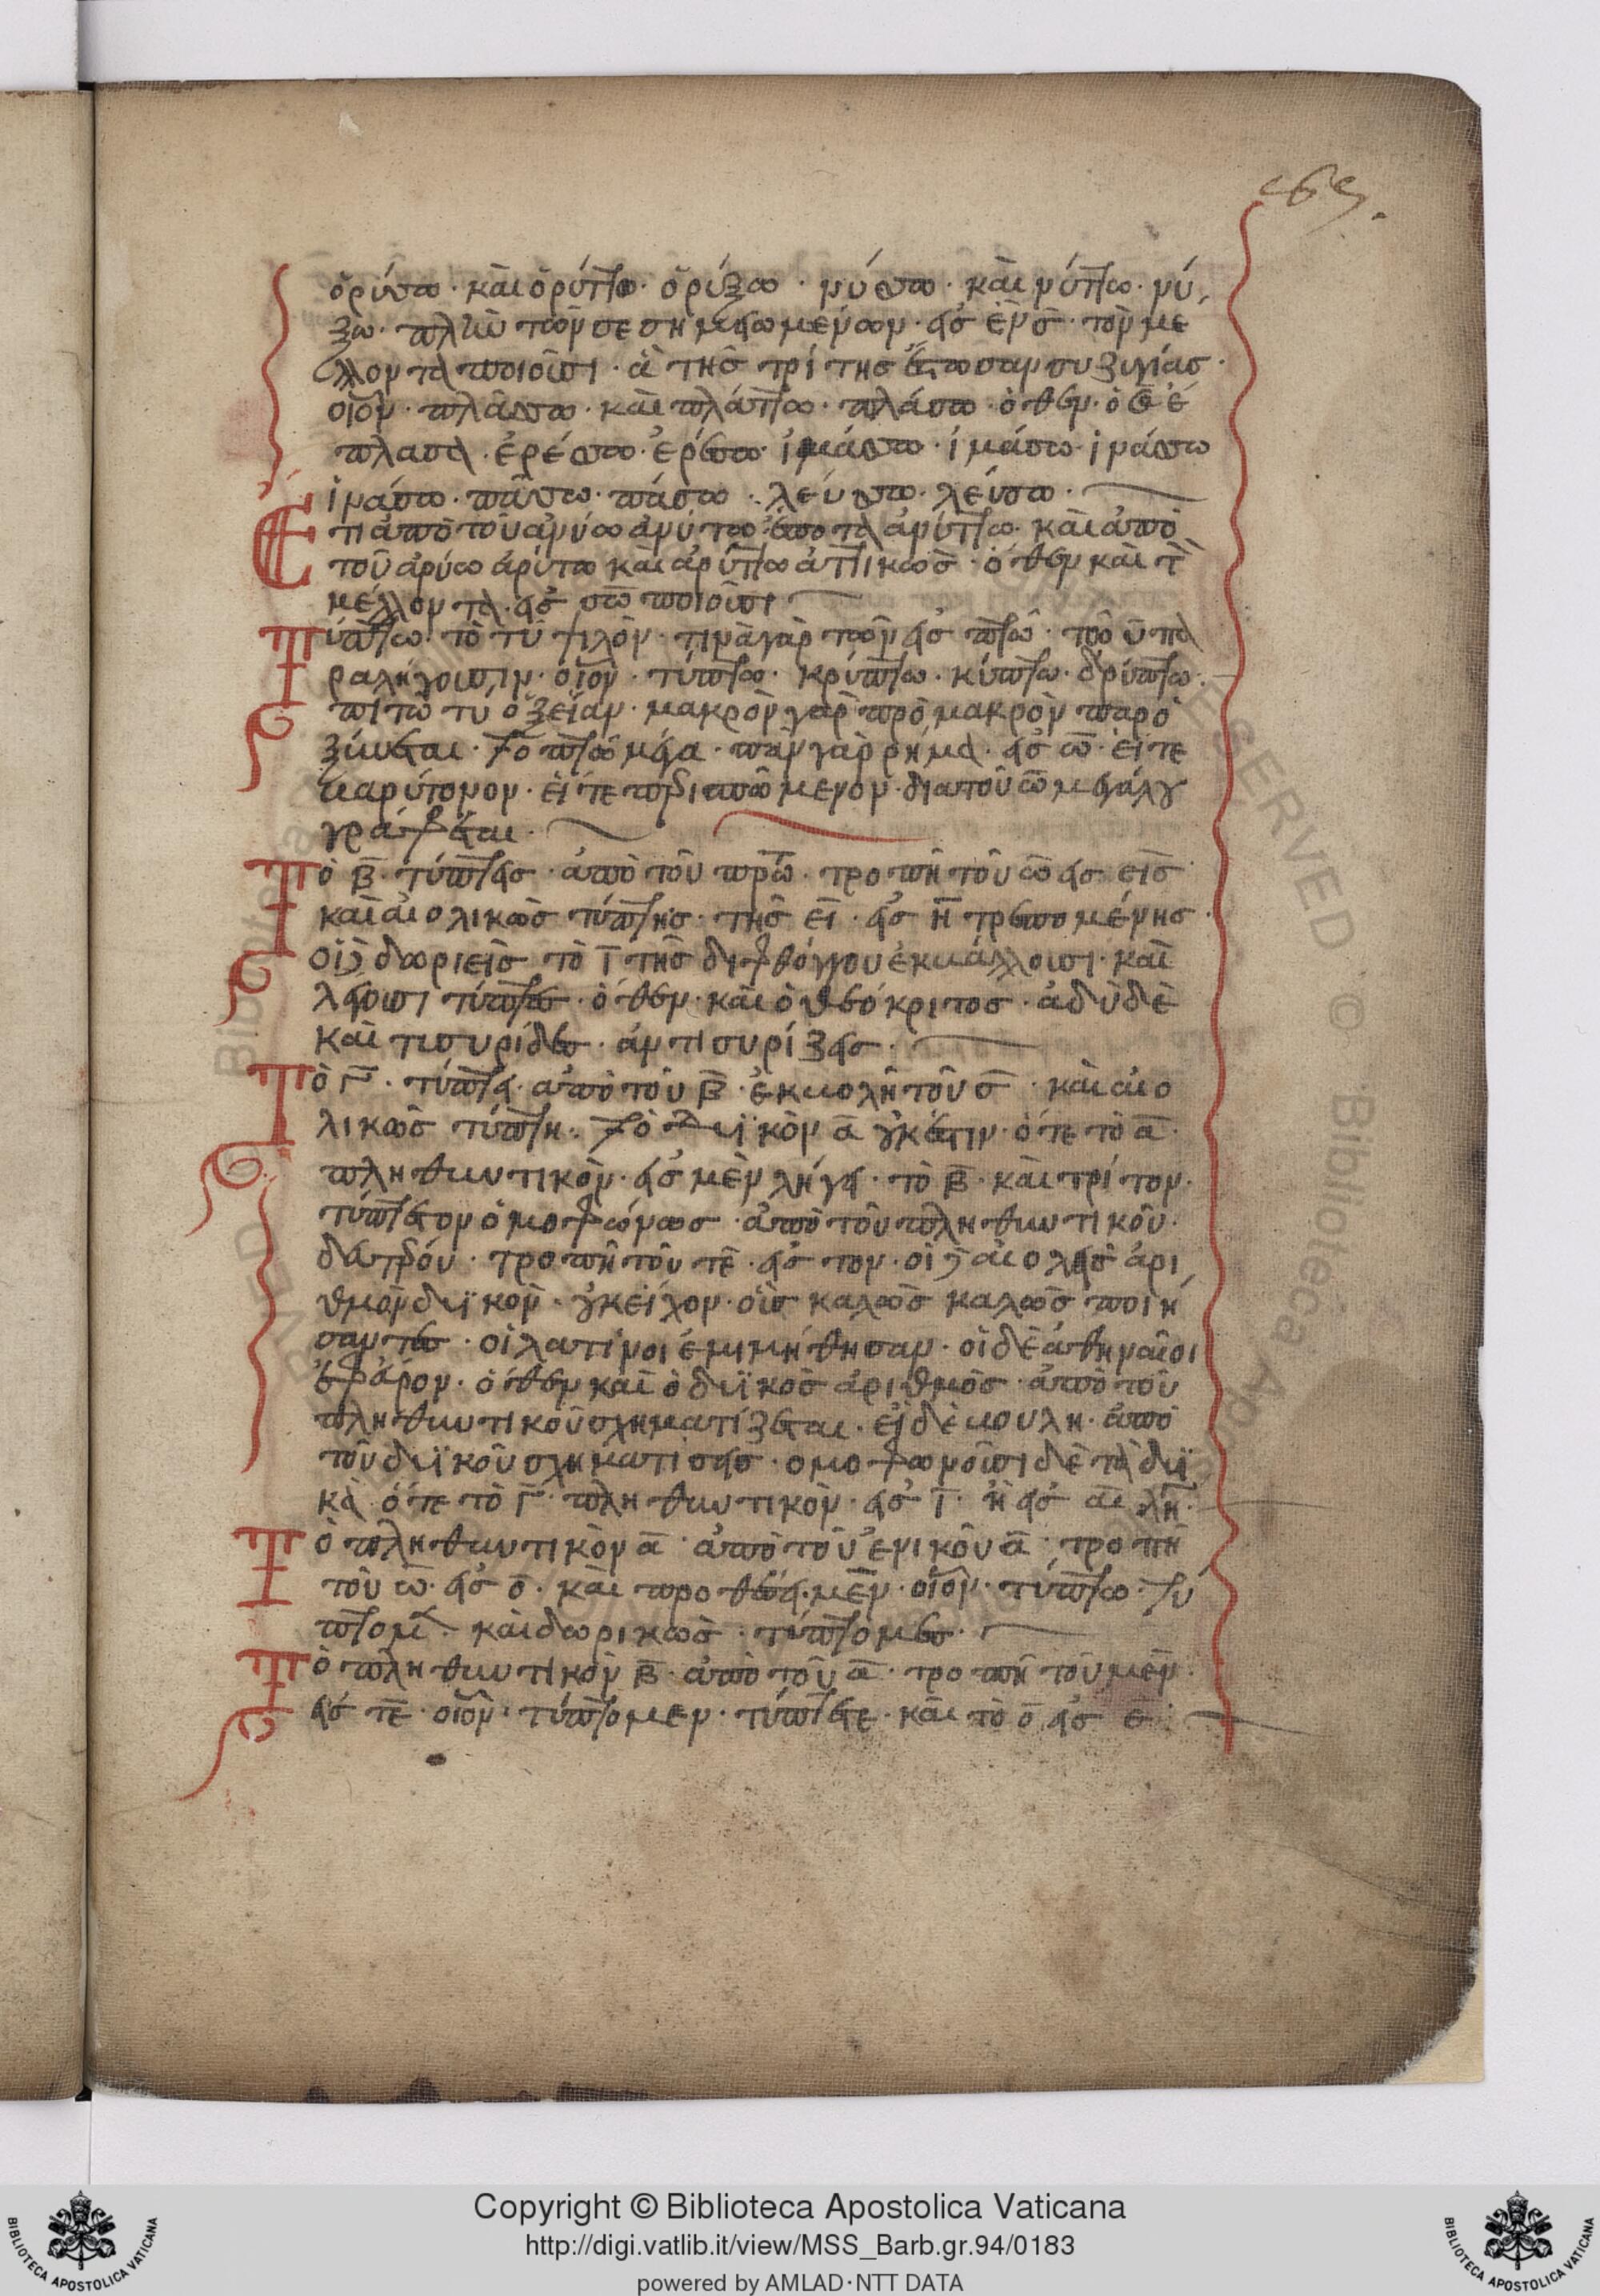 ὀρύσσω · καὶ ὀρύττω · ὀρύξω · νύσσω · καὶ νύττω · νύ
ξω · πλὴν τῶν σεσημειωμένων · εἰς ἓν σ̄ · τὸν μέ
λλοντα ποιοῦσι · ἃ τῆς τρίτης
οἷον · πλάσσω · καὶ πλάττω · πλάσω · ὅθεν ·
πλασα · ἐρέσσω · ἐρέσω · ἱμάσσω · ἱμάσω · ἱμάσσω
ἱμάσω · πάσσω · πάσω · λεύσσω · λεύσω ·
Ἔτι ἀπὸ τοῦ ἀνύω ἀνύτω ἀνύττω · καὶ ἀπὸ
τοῦ ἀρύω ἀρύτω καὶ ἀρύττω ἀττικῶς · ὅθεν καὶ τ
μέλλοντα · εἰς σω̄ ποιοῦσι
Τύπτω · τὸ τυ ψιλόν · τινὰ γὰρ τῶν εἰς πτω · τῶ ῡ πα
ραλήγουσιν · οἷον · τύπτω · κρύπτω · κύπτω · δρύπτω ·
τυ ὀξεῖαν · μακρὸν γὰρ πρὸ μακροῦ παρο
ξύνεται · τὸ πτω μέγα · πᾶν γὰρ ῥῆμα · εἰς ω̄ · εἴτε
βαρύτονον · εἴτε περισπώμενον · διὰ τοῦ ω̄ μεγάλου
γράφεται ·
Τὸ β̄ · τύπτεις · ἀπὸ τοῦ πρώ · τροπῆ τοῦ ω̄ εἰς εις
καὶ αἰολικῶς τύπτης · τῆς ει · εἰς η̄ τρεπομένης ·
οἱ δὲ δωριεῖς τὸ ῑ τῆς διφθόγγου ἐκβάλλουσι · καὶ
λέγουσι τύπτες · ὅθεν · καὶ ὁ θεόκριτος · ἁδὺ δὲ
καὶ τὺ συρίσδες · ἀντὶ συρίζεις ·
Τὸ γ̄ · τύπτει · ἀπὸ τοῦ β̄ · ἐκβολῆ τοῦ σ̄ · καὶ αἰο
λικῶς τύπτη · τὸ δυϊκὸν ᾱ οὐκ ἔστιν · ὅτε τὸ ᾱ
πληθυντικὸν · εἰς μὲν λήγει · τὸ β̄ · καὶ τρίτον ·
τύπτετον ὁμοφώνως · ἀπὸ τοῦ πληθυντικοῦ
δευτέρου · τροπῆ τοῦ τε · εἰς τον · οἱ δὲ αἰολεῖς ἀρι
θμὸν δυϊκὸν · οὐκ εἶχον · οὓς καλῶς καλῶς ποιή
σαντες · οἱ λατῖνοι ἐμιμήθησαν · οἱ δὲ ἀθηναῖοι
εὗρον · ὅθεν καὶ ὁ δυϊκὸς ἀριθμὸς · ἀπὸ τοῦ
πληθυντικοῦ σχηματίζεται · εἰ δὲ βούλη · ἀπὸ
τοῦ δυϊκοῦ σχηματίσεις · ὁμοφωνοῦσι δὲ τὰ δυϊ
κὰ ὅτε τὸ γ̄ · πληθυντικὸν · εἰς ῑ · ἢ εἰς αι λή ·
Τὸ πληθυντικὸν ᾱ · ἀπὸ τοῦ ἑνικοῦ ᾱ · τροπῆ
τοῦ ω̄ · εἰς ο̄ · καὶ προσθέσει · μεν · οἷον · τύπτω · τύ
πτομεν · καὶ δωρικῶς · τύπτομες ·
Τὸ πληθυντικὸν β̄ · ἀπὸ τοῦ ᾱ · τροπῆ τοῦ μεν
εἰς τε · οἷον · τύπτομεν · τύπτετε · καὶ τὸ ο̄ εἰς ε̄ ·
Copyright © Biblioteca Apostolica Vaticana
http://digi.vatlib.it/view/MSS_Barb.gr.94/0183
powered by AMLAD·NTT DATA
BIBLIOTECA APOSTOLICA VATICANA
BIBLIOTECA APOSTOLICA VATICANA